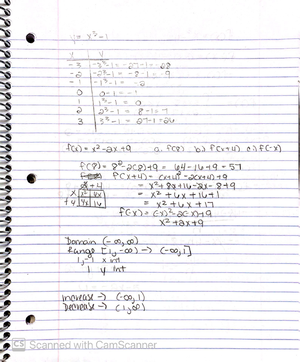 y = x³ - 1
x | y
-3 | -3³-1 = -27-1 = -28
-2 | -2³-1 = -8-1 = -9
-1 | -1³-1 = -2
0 | 0-1 = -1
1 | 1³-1 = 0
2 | 2³-1 = 8-1 = 7
3 | 3³-1 = 27-1 = 26
f(x) = x²-2x+9 a. f(8) b) f(x+4) c) f(-x)
f(8) = 8²-2(8)+9 = 64-16+9 = 57
f(x+4) = (x+4)²-2(x+4)+9
x + 4 = x²+8x+16-2x-8+9
x x² 4x = x²+6x+16+1
+4 4x 16 = x²+6x+17
f(-x) = (-x)²-2(-x)+9
x²+2x+9
Domain (-∞, ∞)
Range [1, -∞) → (-∞, 1]
1, -1 x int
1 y int
increase → (-∞, 1)
Decrease → (1, ∞)
CS Scanned with CamScanner